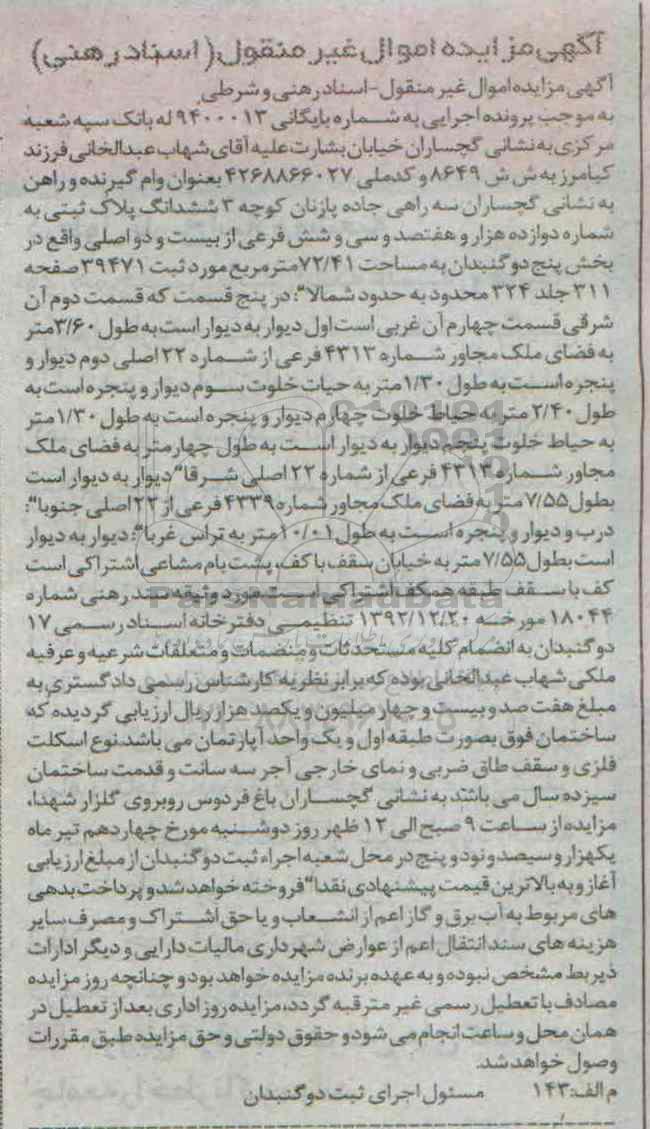 آگهی مزایده اموال غیر منقول( اسناد رهنی)
آگهی مزایده اموال غیر منقول-اسناد رهنی و شرطی
به موجب پرونده اجرایی به شماره بایگانی ۹۴۰۰۰۱۳ له بانک سپه شعبه
مرکزی به نشانی گچساران خیابان بشارت علیه آقای شهاب عبدالخانی فرزند
کیامرز به ش ش ۸۶۴۹ و کدملی ۴۲۶۸۸۶۶۰۲۷ بعنوان وام گیرنده و راهن
به نشانی گچساران سه راهی جاده پازنان کوچه ۳ ششدانگ پلاک ثبتی به
شماره دوازده هزار و هفتصد و سی و شش فرعی از بیست و دو اصلی واقع در
بخش پنج دوگنبدان به مساحت ۷۲/۴۱ مترمربع مورد ثبت ۳۹۴۷۱ صفحه
۳۱۱ جلد ۳۲۴ محدود به حدود شمالا": در پنج قسمت که قسمت دوم آن
شرقی قسمت چهارم آن غربی است اول دیوار به دیوار است به طول ۳/۶۰متر
به فضای ملک مجاور شماره ۴۳۱۳ فرعی از شماره ۲۲ اصلی دوم دیوار و
پنجره است به طول ۱/۳۰ متر به حیات خلوت سوم دیوار و پنجره است به
طول ۲/۴۰ متر به حیاط خلوت چهارم دیوار و پنجره است به طول ۱/۳۰متر
به حیاط خلوت پنجم دیوار به دیوار است به طول چهارمتر به فضای ملک
مجاور شماره ۴۳۱۳ فرعی از شماره ۲۲ اصلی شرقا" دیوار به دیوار است
بطول ۷/۵۵ متر به فضای ملک مجاور شماره ۴۳۳۹ فرعی از ۲۲ اصلی جنوبا":
درب و دیوار و پنجره است به طول ۱۰/۰۱ متر به تراس غربا": دیوار به دیوار
است بطول ۷/۵۵ متر به خیابان سقف با کف، پشت بام مشاعی اشتراکی است
کف با سقف طبقه همکف اشتراکی است مورد وثیقه سند رهنی شماره
۱۸۰۴۴ مورخه ۱۳۹۲/۱۲/۲۰ تنظیمی دفترخانه اسناد رسمی ۱۷
دوگنبدان به انضمام کلیه مستحدثات و منضمات و متعلقات شرعیه و عرفیه
ملکی شهاب عبدالخانی بوده که برابر نظریه کارشناس رسمی دادگستری به
مبلغ هفت صد و بیست و چهار میلیون و یکصد هزار ریال ارزیابی گردیده که
ساختمان فوق بصورت طبقه اول و یک واحد آپارتمان می باشد نوع اسکلت
فلزی و سقف طاق ضربی و نمای خارجی آجر سه سانت و قدمت ساختمان
سیزده سال می باشد به نشانی گچساران باغ فردوس روبروی گلزار شهدا،
مزایده از ساعت ۹ صبح الی ۱۲ ظهر روز دوشنبه مورخ چهاردهم تیر ماه
یکهزار و سیصد و نود و پنج در محل شعبه اجراء ثبت دوگنبدان از مبلغ ارزیابی
آغاز و به بالاترین قیمت پیشنهادی نقدا" فروخته خواهد شد و پرداخت بدهی
های مربوط به آب برق و گاز اعم از انشعاب و یا حق اشتراک و مصرف سایر
هزینه های سند انتقال اعم از عوارض شهرداری مالیات دارایی و دیگر ادارات
ذیربط مشخص نبوده و به عهده برنده مزایده خواهد بود و چنانچه روز مزایده
مصادف با تعطیل رسمی غیر مترقبه گردد، مزایده روز اداری بعد از تعطیل در
همان محل و ساعت انجام می شود و حقوق دولتی و حق مزایده طبق مقررات
وصول خواهد شد.
م الف: ۱۴۳ مسئول اجرای ثبت دوگنبدان
ParsNamadData